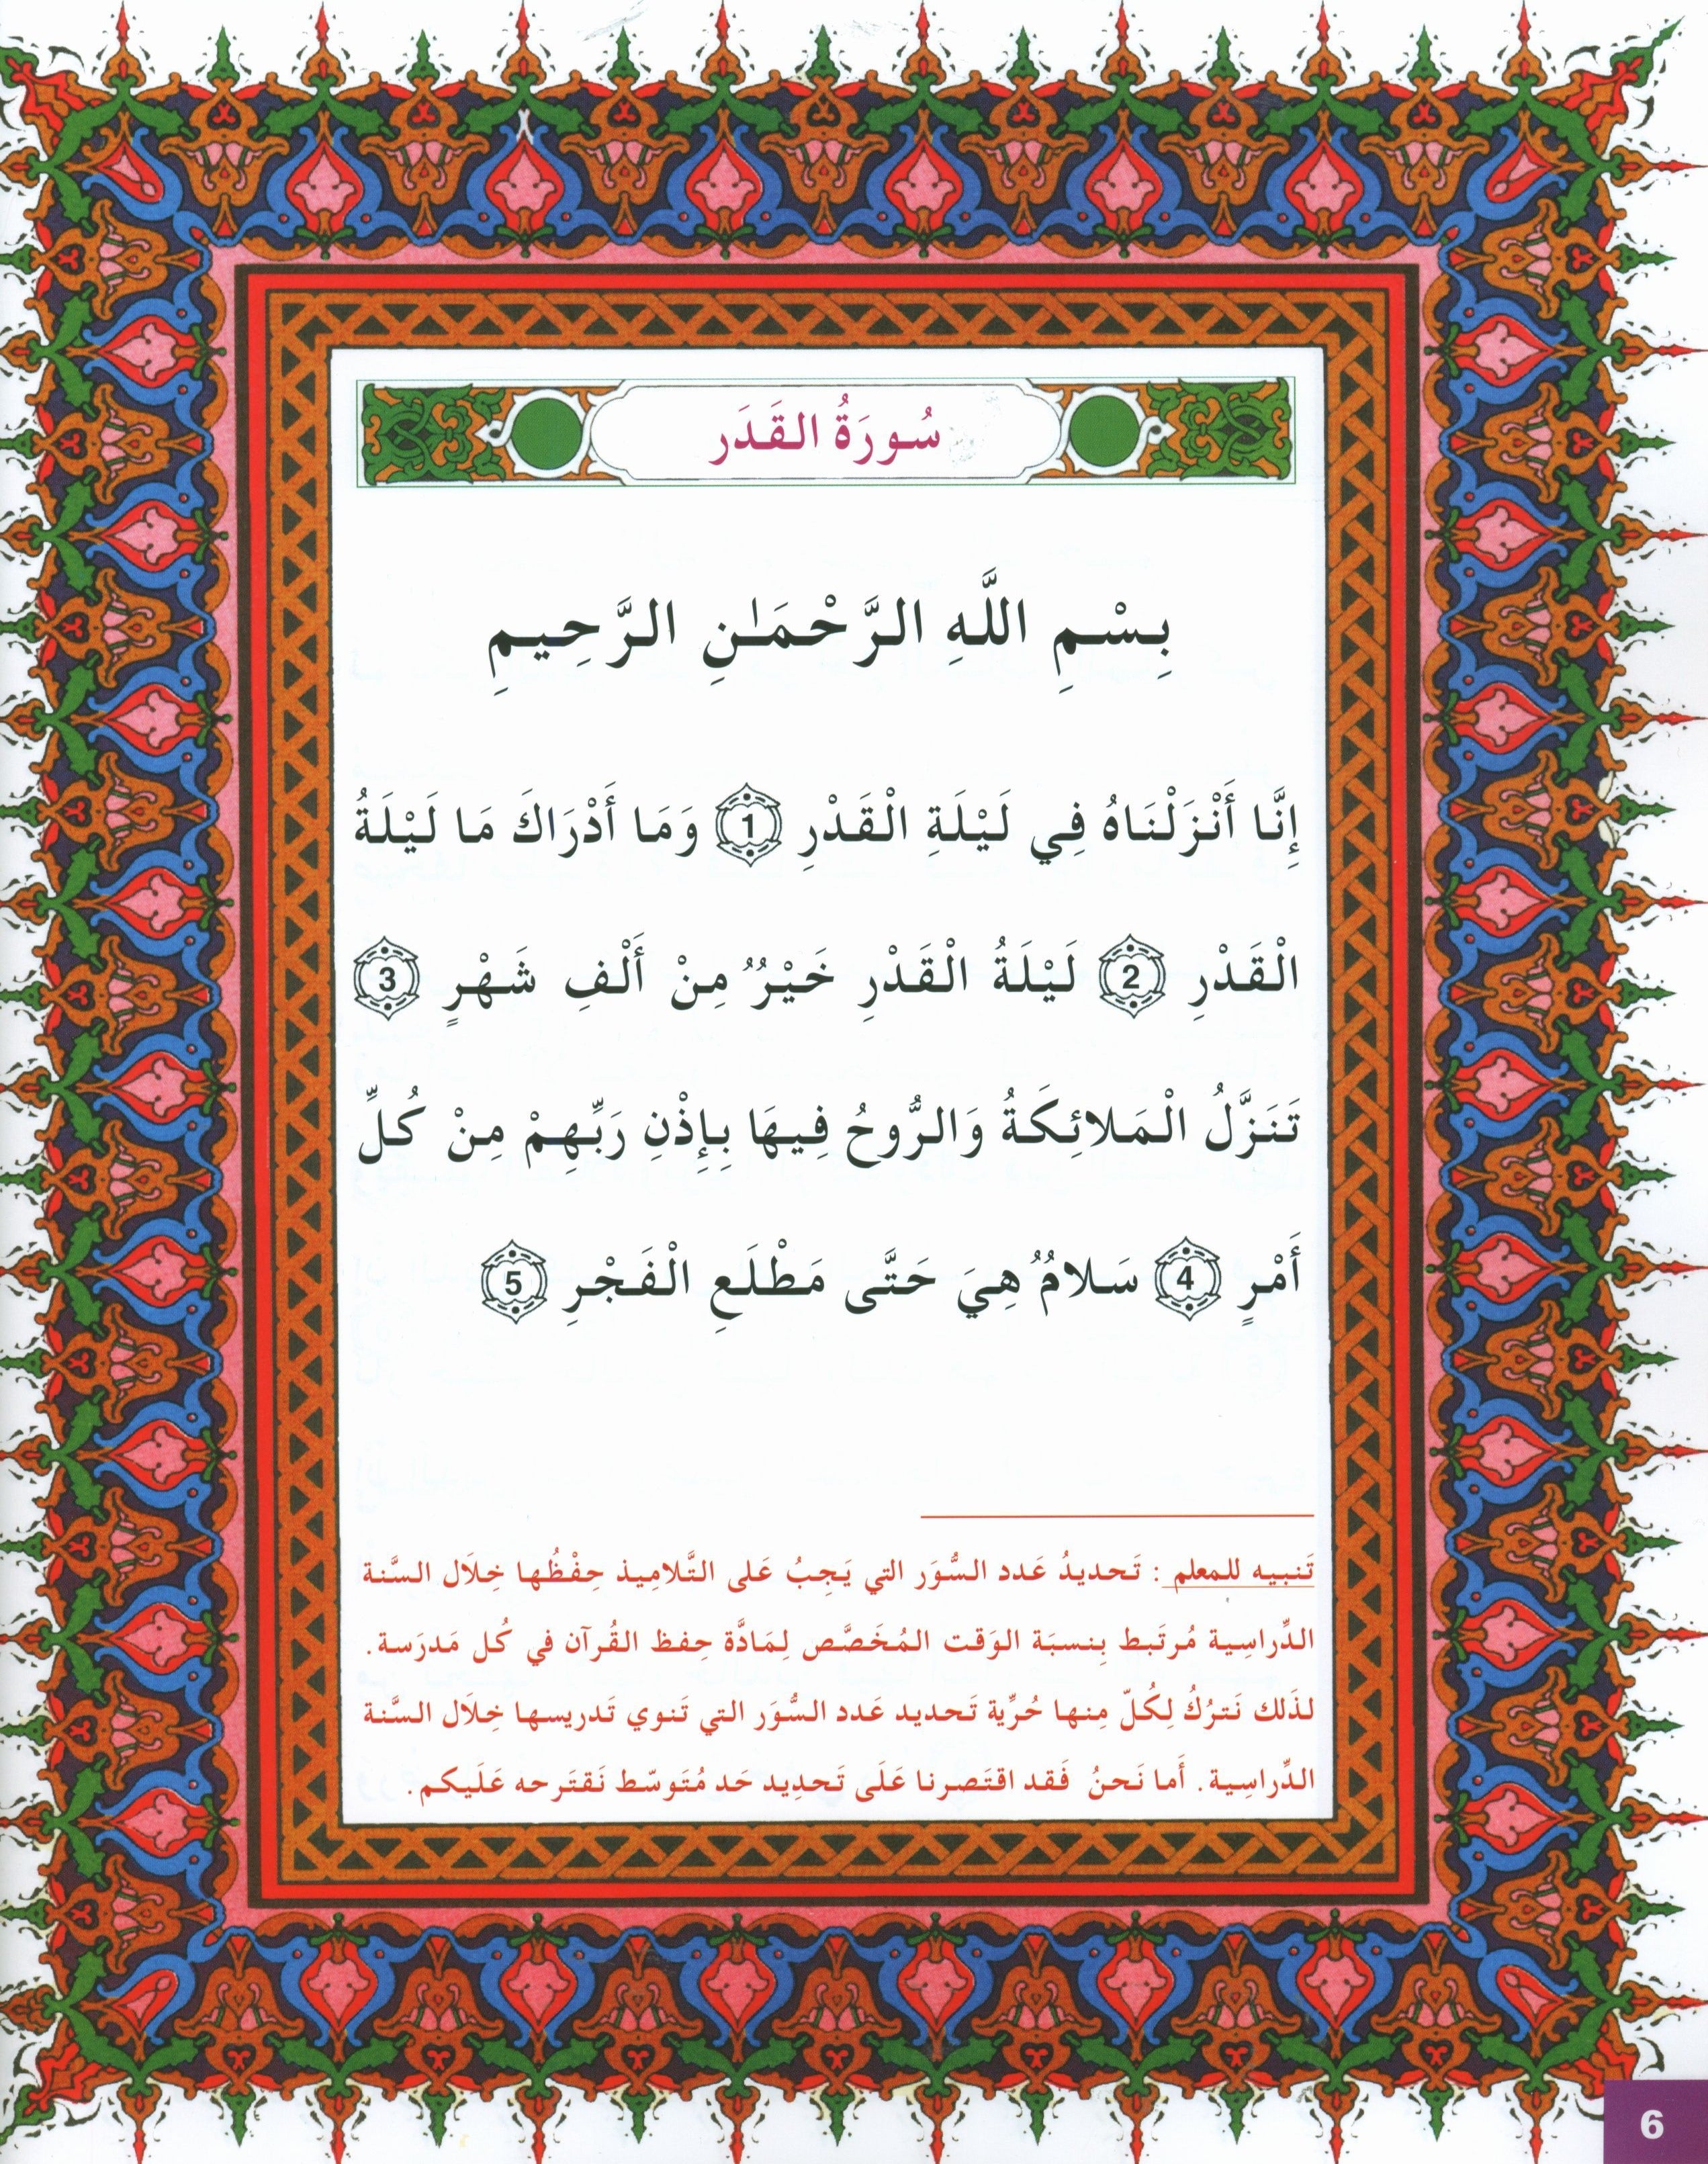 سُورَةُ القَدَر
بِسْمِ اللَّهِ الرَّحْمَٰنِ الرَّحِيمِ
إِنَّا أَنْزَلْنَاهُ فِي لَيْلَةِ الْقَدْرِ 1 وَمَا أَدْرَاكَ مَا لَيْلَةُ
الْقَدْرِ 2 لَيْلَةُ الْقَدْرِ خَيْرٌ مِنْ أَلْفِ شَهْرٍ 3
تَنَزَّلُ الْمَلائِكَةُ وَالرُّوحُ فِيهَا بِإِذْنِ رَبِّهِمْ مِنْ كُلِّ
أَمْرٍ 4 سَلامٌ هِيَ حَتَّى مَطْلَعِ الْفَجْرِ 5
تَنبيه للمعلم : تَحديدُ عَدد السُّوَر التي يَجِبُ عَلى التَّلامِيذ حِفْظُها خِلَال السَّنة
الدِّراسِية مُرتَبط بِنسبَة الوَقت المُخَصَّص لِمَادَّة حِفظ القُرآن في كُل مَدرَسة.
لذَلك نَترُكُ لِكُلّ مِنها حُرِّية تَحديد عَدد السُّوَر التي تَنوي تَدريسها خِلَال السَّنة
الدِّراسِية. أَما نَحنُ فَقد اقتَصرنا عَلَى تَحدِيد حَد مُتَوسّط نَقتَرحه عَلَيكم.
6